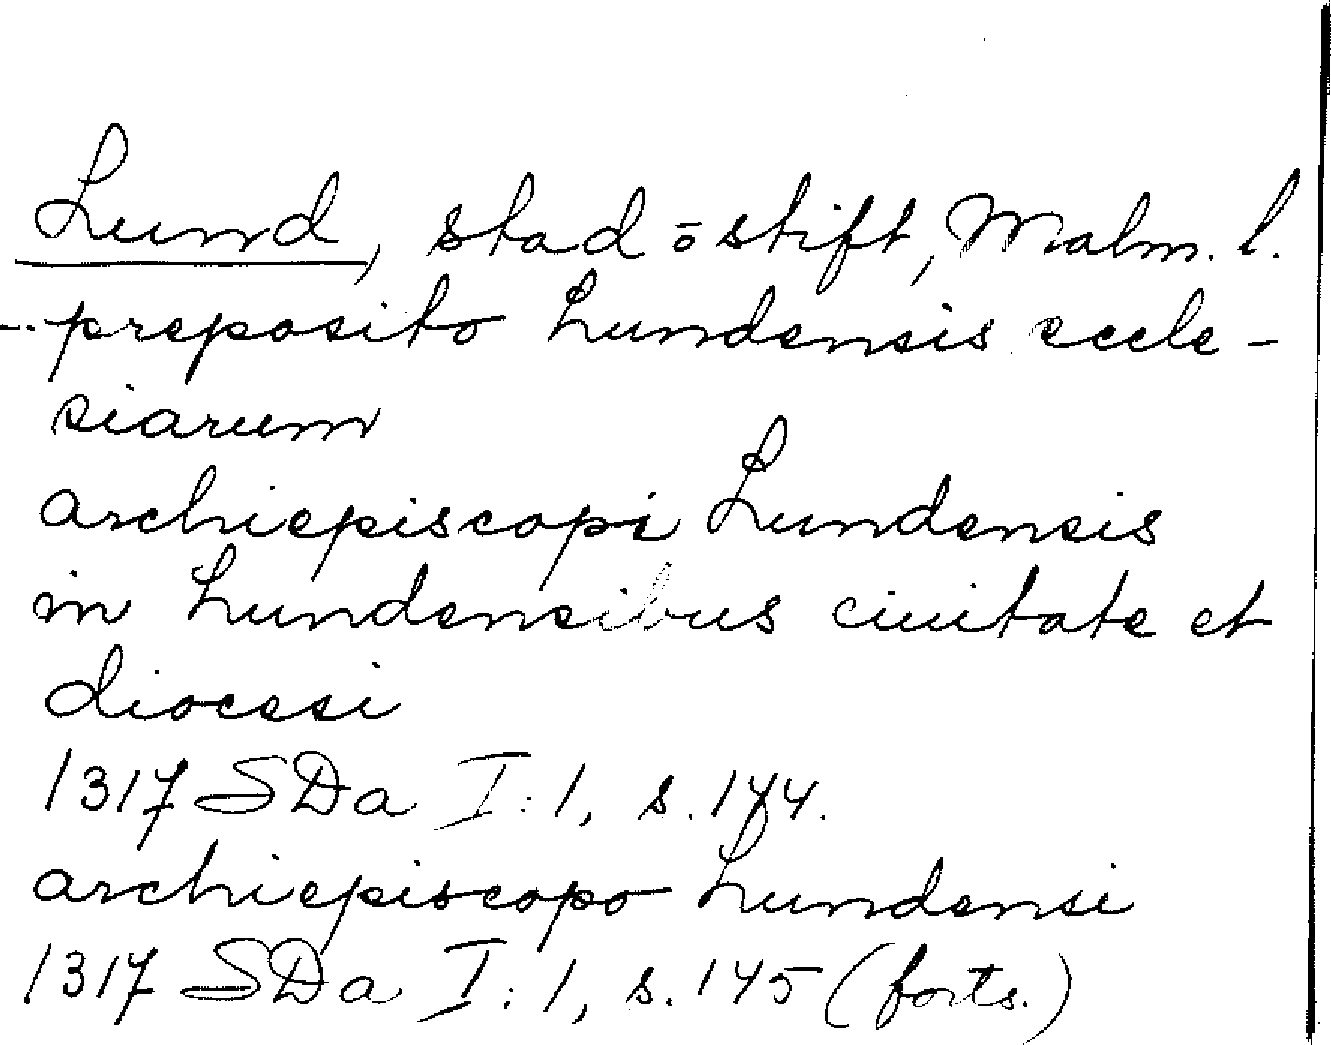 Lund, stad o stift, Malm. l.
-.. preposito Lundensis eccle-
siarum
archiepiscopi Lundensis
in Lundensibus ciuitate et
diocesi
1317 SDa I:1, s. 144.
archiepiscopo Lundensi
1317 SDa I:1, s. 145 (forts.)